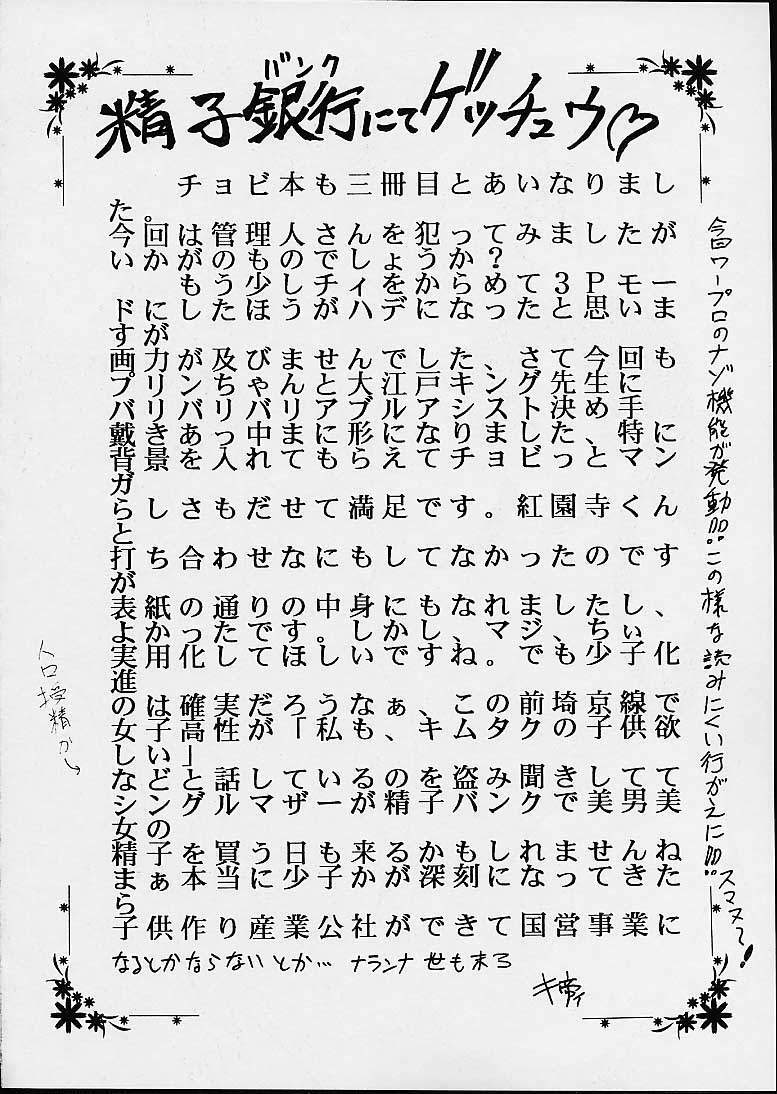 精子銀行にてゲッチュウ♡
バンク
チョビ本も三冊目とあいなりまし
た。
今回は管理人さんを犯ってみましたが
いかがのものでしょうか？
もう少しチィをからめて３Pモー
ドにしたほうがハデになったと思いま
すが
画力が及びませんでした、さて今回も
プリンちゃんと大江戸キング先生に
バリバリバリアブルアシスト決め手
戴きあっ中にも形になりました、特に
背景を入れてもらえてチョビっとマン
ガらしさもだせて満足です。紅園寺くん
と打ち合わせなにもしてなかったのです
が表紙の通りの中身にもなれましたし、
よかったです。しかし、マジ、ちぃ
実用化してほしいですね。でも少子化
進のは確実だろうなぁ、この前埼京線で
女子高性が「私も、キムタクの子供欲
しい」話しているのを盗み聞きして
などと、シングルマザーが精子バンクで美男美
女の
精子を買う日も来るかもしれませんね
まぁ本当に少子が深刻になってきた
ら子供作り産業公社ができて国営事業に
なるとかならないとか… ナランナ 世も末ろ
今回ワープロのナゾ機能が発動!!! この様な読みにくい行がえに!!!
スマヌ〜!
人口授精か